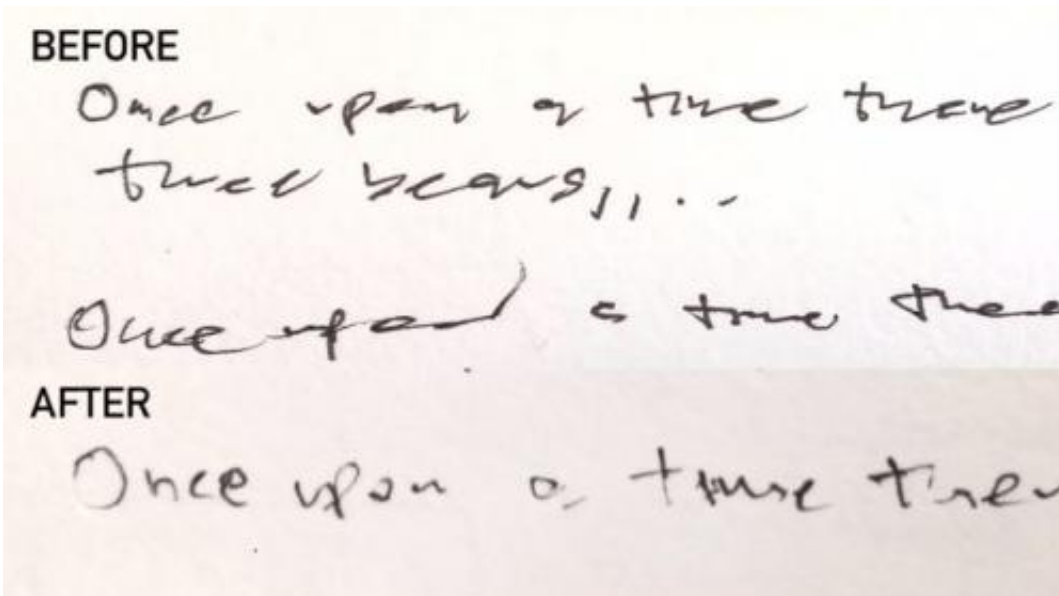 BEFORE
Once upon a time there
three bears,,...
Once upon a time
AFTER
Once upon a time